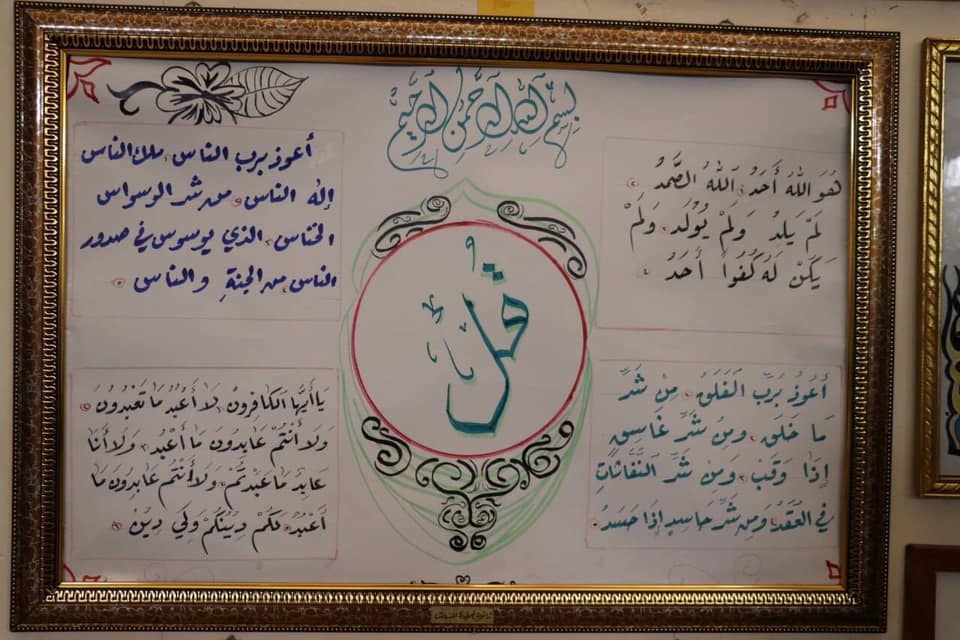 بسم الله الرحمن الرحيم
قل
هُوَ اللهُ أَحَدٌ اللهُ الصَّمَدُ
لَمْ يَلِدْ وَلَمْ يُولَد وَلَمْ
يَكُنْ لَهُ كُفُواً أَحَدٌ
أعوذ برب الناس ملك الناس
إله الناس من شر الوسواس
الخناس الذي يوسوس في صدور
الناس من الجنةِ والناس
أَعُوذُ بِرَبِّ الْفَلَقِ مِنْ شَرِّ
مَا خَلَقَ وَمِنْ شَرِّ غَاسِقٍ
إِذَا وَقَبَ وَمِن شَرِّ النَّفَّاثَاتِ
فِي العُقَدِ وَمِن شَرِّ حَاسِدٍ إِذَا حَسَدَ
يَا أَيُّهَا الكَافِرُونْ لَا أَعْبُدُ مَا تَعْبُدُونَ
وَلَا أَنْتُمْ عَابِدُونَ مَا أَعْبُد وَلَا أَنَا
عَابِدٌ مَا عَبَدتُّمْ وَلَا أَنْتُمْ عَابِدُونَ مَا
أَعْبُدُ لَكُمْ دِيْنُكُمْ وَلِيَ دِيْنِ